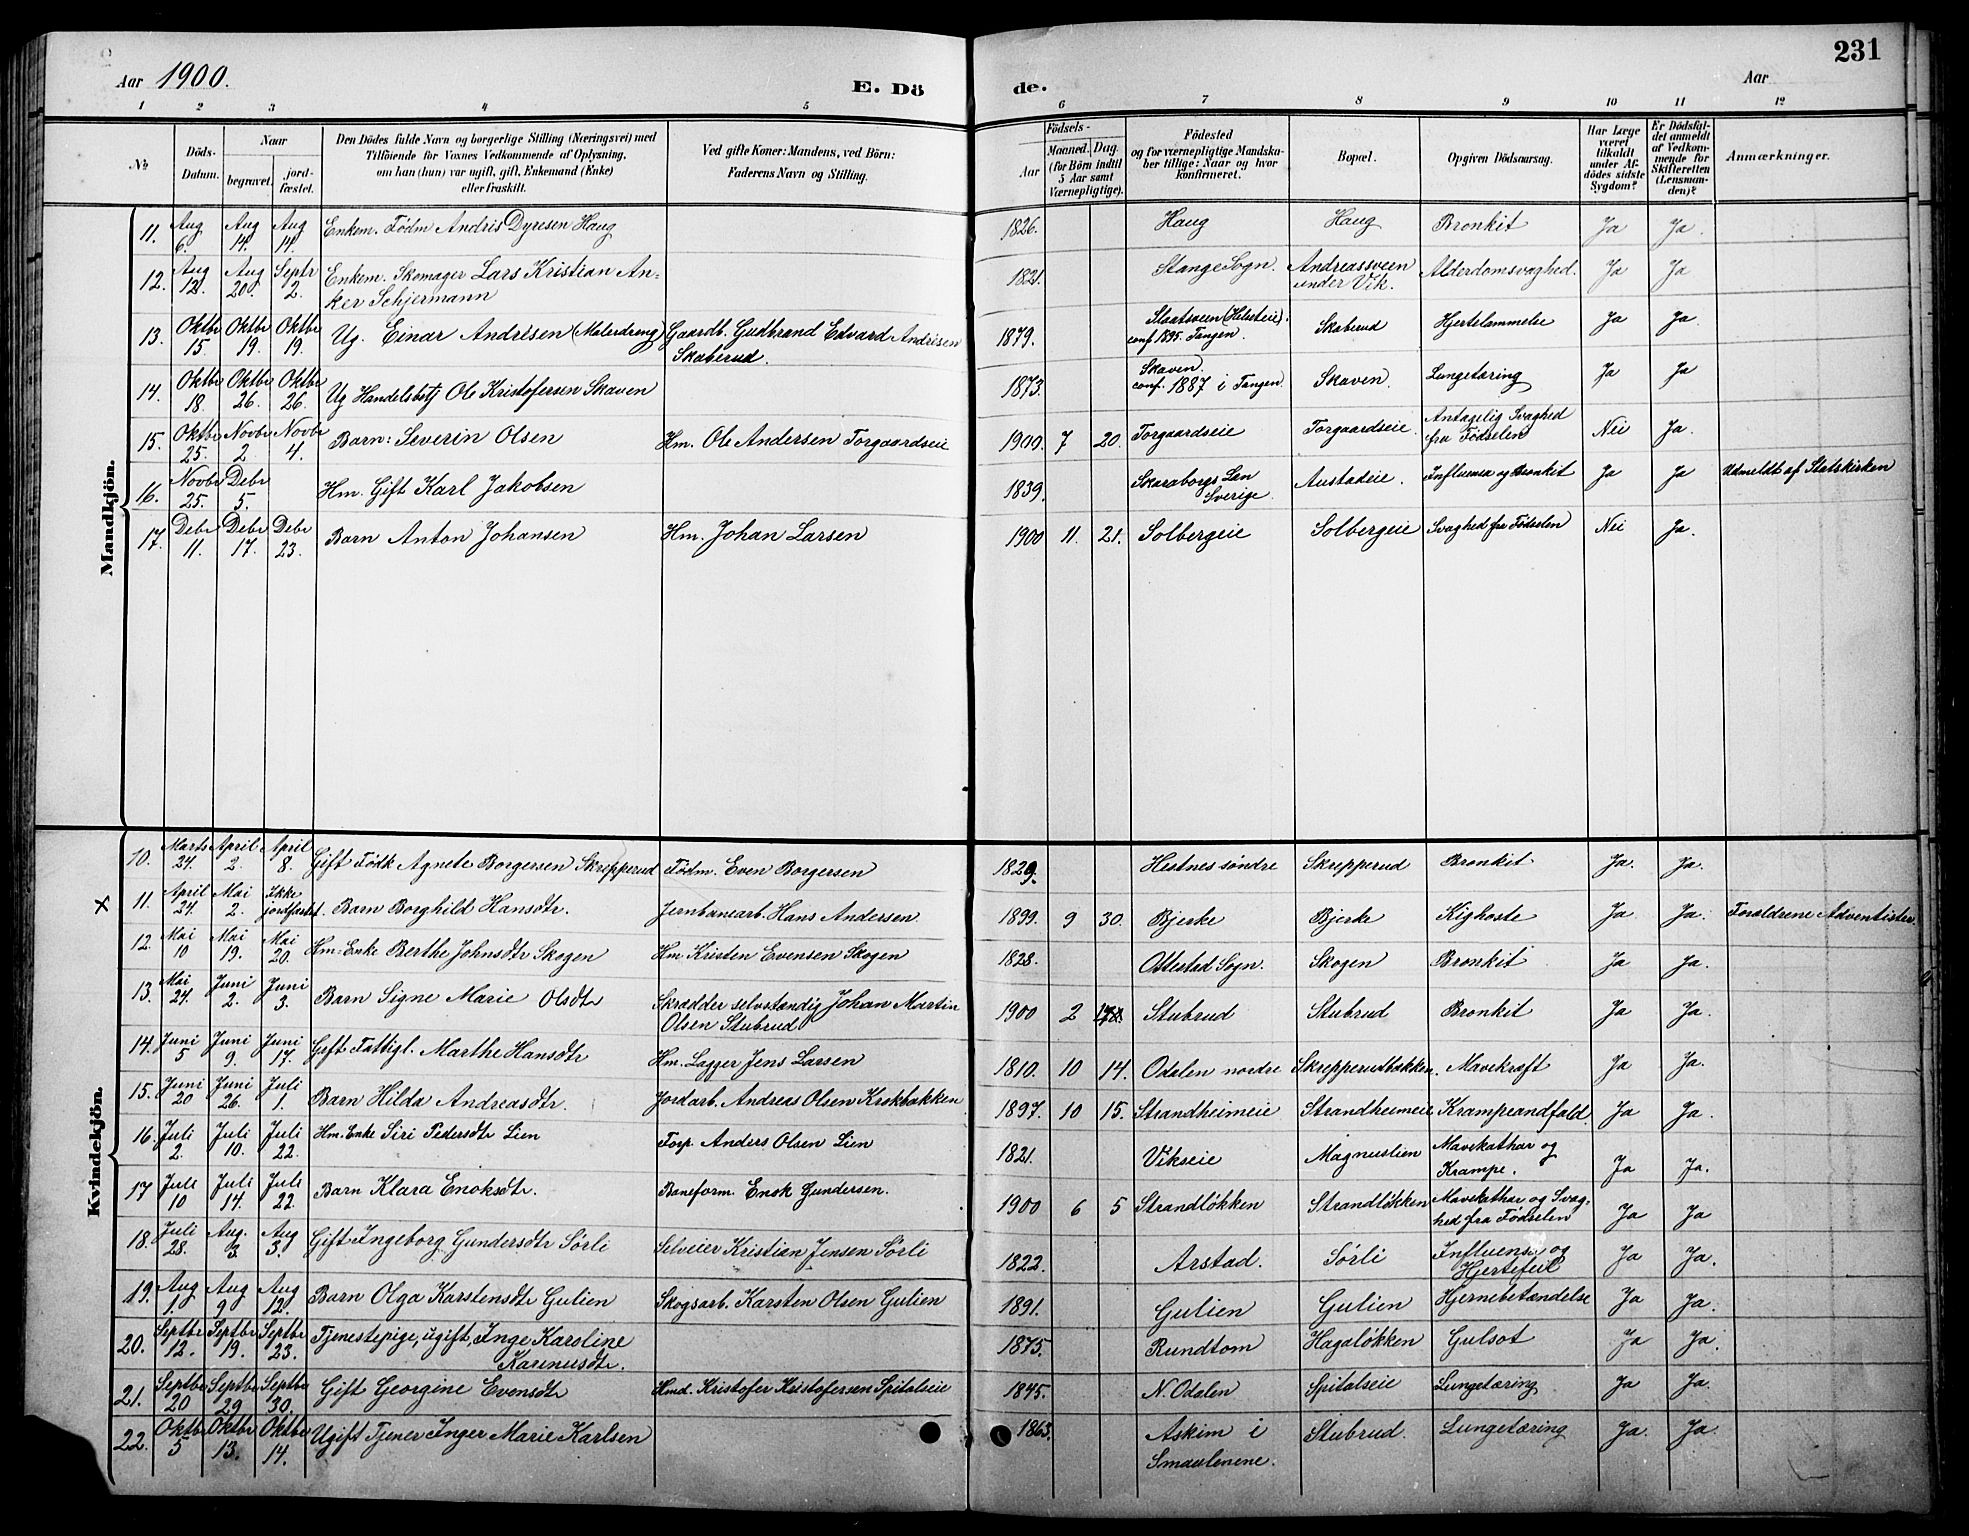 231
Aar 1900.
E. Dö
de.
Aar
1 2 3 4 5 6 7 8 9 10 11 12
No.
Döds-
Datum.
Naar
begravet.
jord-
fæstet.
Den Dödes fulde Navn og borgerlige Stilling (Næringsvei) med
Tilföiende for Voxnes Vedkommende af Oplysning,
om han (hun) var ugift, gift, Enkemand (Enke)
eller fraskilt.
Ved gifte Koner: Mandens, ved Börn:
Faderens Navn og Stilling.
Födsels-
Aar
Maaned.
Dag.
(for Börn indtil
5 Aar samt
Værnepligtige).
Födested
og for værnepligtige Mandska-
ber tillige: Naar og hvor
konfirmeret.
Bopæl.
Opgiven Dödsaarsag.
Har Læge
været
tilkaldt
under Af-
dödes sidste
Sygdom?
Er Dödsfal-
det anmeldt
af Vedkom-
mende for
Skifteretten
(Lensman-
den)?
Anmærkninger.
Mandkjön.
11. Aug 6. Aug 14. Aug 14. Enkem. Fødm Andris Dyresen Haug 1826. Haug Haug Bronkit Ja Ja.
12. Aug 12. Aug 20. Septr 2. Enkem. Skomager Lars Kristian An-
ker Schjermann 1821. Stange Sogn. Andreassveen
under Vik. Alderdomsvaghed. Ja Ja
13. Oktbr 15 Oktbr 19. Oktbr 19. Ug. Einar Andrisen (Malerdreng) Gaardb. Gudbrand Edvard Andrisen
Skaberud. 1879. Slaatsveen (Helseteie).
conf 1895. Tangen. Skaberud Hjertelammelse Ja Ja
14. Oktbr 18. Oktbr 26. Oktbr 26. Ug Handelsbetj Ole Kristofersen Skaven 1873. Skaven.
conf. 1887 i Tangen. Skaven. Lungetæring Ja Ja
15. Oktbr 25. Novbr 2 Novbr 4. Barn: Severin Olsen Hm. Ole Andersen Torgaardseie 1900. 7 20. Torgaardseie Torgaardseie. Antagelig Svaghed
fra Fødselen Nei Ja.
16. Novbr 25. Debr 5. Hm. Gift Karl Jakobsen 1839. Skaraborgs Län
Sverige. Austadeie. Influenza og Bronkit Ja Ja Udmeldt af Statskirken
17. Debr 11. Debr 17. Debr 23. Barn Anton Johansen Hm. Johan Larsen 1900 11. 21. Solbergeie Solbergeie Svaghed fra Fødselen Nei Ja.
Kvindekjön.
10. Marts 24. April 2. April 8. Gift Fødk Agnete Borgersen Skrepperud Fødm. Even Borgersen 1829. Hestnes søndre Skrepperud Bronkit Ja. Ja.
x 11. April 24. Mai 2. Ikke
jordfæstet. Barn Borghild Hansdtr. Jernbanearb. Hans Andersen 1899. 9 30. Bjerke Bjerke Kighoste Ja Ja. Forældrene Adventister.
12. Mai 10 Mai 19. Mai 20. Hm: Enke Berthe Johnsdtr Skogen Hm. Kristen Evensen Skogen 1828. Ottestad Sogn. Skogen Bronkit Ja Ja.
13. Mai 24. Juni 2. Juni 3. Barn Signe Marie Olsdtr Skrædder selvstændig Johan Martin
Olsen Stubrud 1900 2 Stubrud Stubrud Bronkit Ja Ja.
14. Juni 5 Juni 9. Juni 17. Gift Fattigl. Marthe Hansdtr Hm. Lægger Jens Larsen 1810. 10 14. Odalen nordre Skrepperudbakken. Mavekræft Ja Ja.
15. Juni 20 Juni 26. Juli 1. Barn Hilda Andreasdtr. Jordarb. Andreas Olsen Krokbakken 1897. 10 15. Strandheimeie Strandheimeie Krampeandfald. Ja Ja.
16. Juli 2. Juli 10. Juli 22. Hm. Enke Siri Pedersdtr Lien Forp. Anders Olsen Lien 1821. Vikseie Magnuslien Mavekathar og
Krampe. Ja Ja.
17 Juli 10 Juli 14. Juli 22. Barn Klara Enoksdtr. Baneform. Enok Gundersen. 1900 6 5 Strandløkken Strandløkken Mavekathar og Svag-
hed fra Fødselen Ja Ja
18. Juli 28. Aug. 3. Aug 3. Gift Ingeborg Gundersdtr Sørli Selveier Kristian Jensen Sørli 1822. Arstad. Sørli Influensa og
Hjertefeil Ja Ja.
19. Aug 1. Aug 9. Aug 12. Barn Olga Karstensdtr Gulien Skogsarb. Karsten Olsen Gulien 1891. Gulien Gulien Hjernebetændelse Ja Ja.
20. Septbr 12. Septbr 19. Septbr 23. Tjenestepige, ugift, Inge Karoline
Karinusdtr. 1875. Rundtom Hagaløkken Gulsot Ja Ja.
21. Septbr 20 Septbr 29 Septbr 30. Gift Georgine Evensdtr Hmd. Kristofer Kristofersen Spitalseie 1845. N. Odalen Spitalseie Lungetæring Ja Ja.
22. Oktbr 5 Oktbr 13. Oktbr 14. Ugift Tjener Inger Marie Karlsen 1863. Askim i
Smaalenene. Stubrud. Lungetæring Ja. Ja.